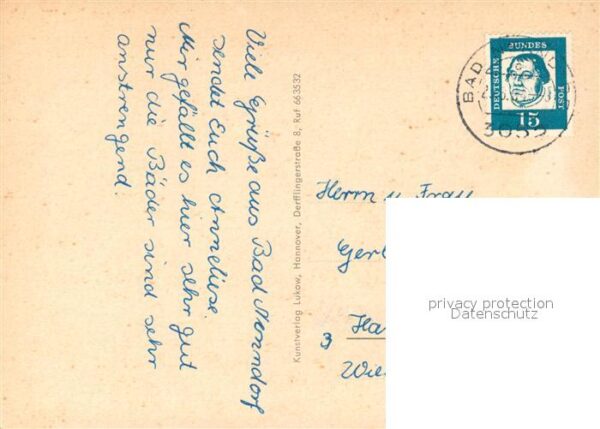 Viele Grüße aus Bad Nenndorf
sendet Euch Anneliese.
Mir gefällt es hier sehr gut
nur die Bäder sind sehr
anstrengend.
Kunstverlag Lukow, Hannover, Derfflingerstraße 8, Ruf 663532
BAD
3055
DEUTSCHE BUNDES POST
15
Herrn u. Frau
Gerl
Ha
3
Wil
privacy protection
Datenschutz